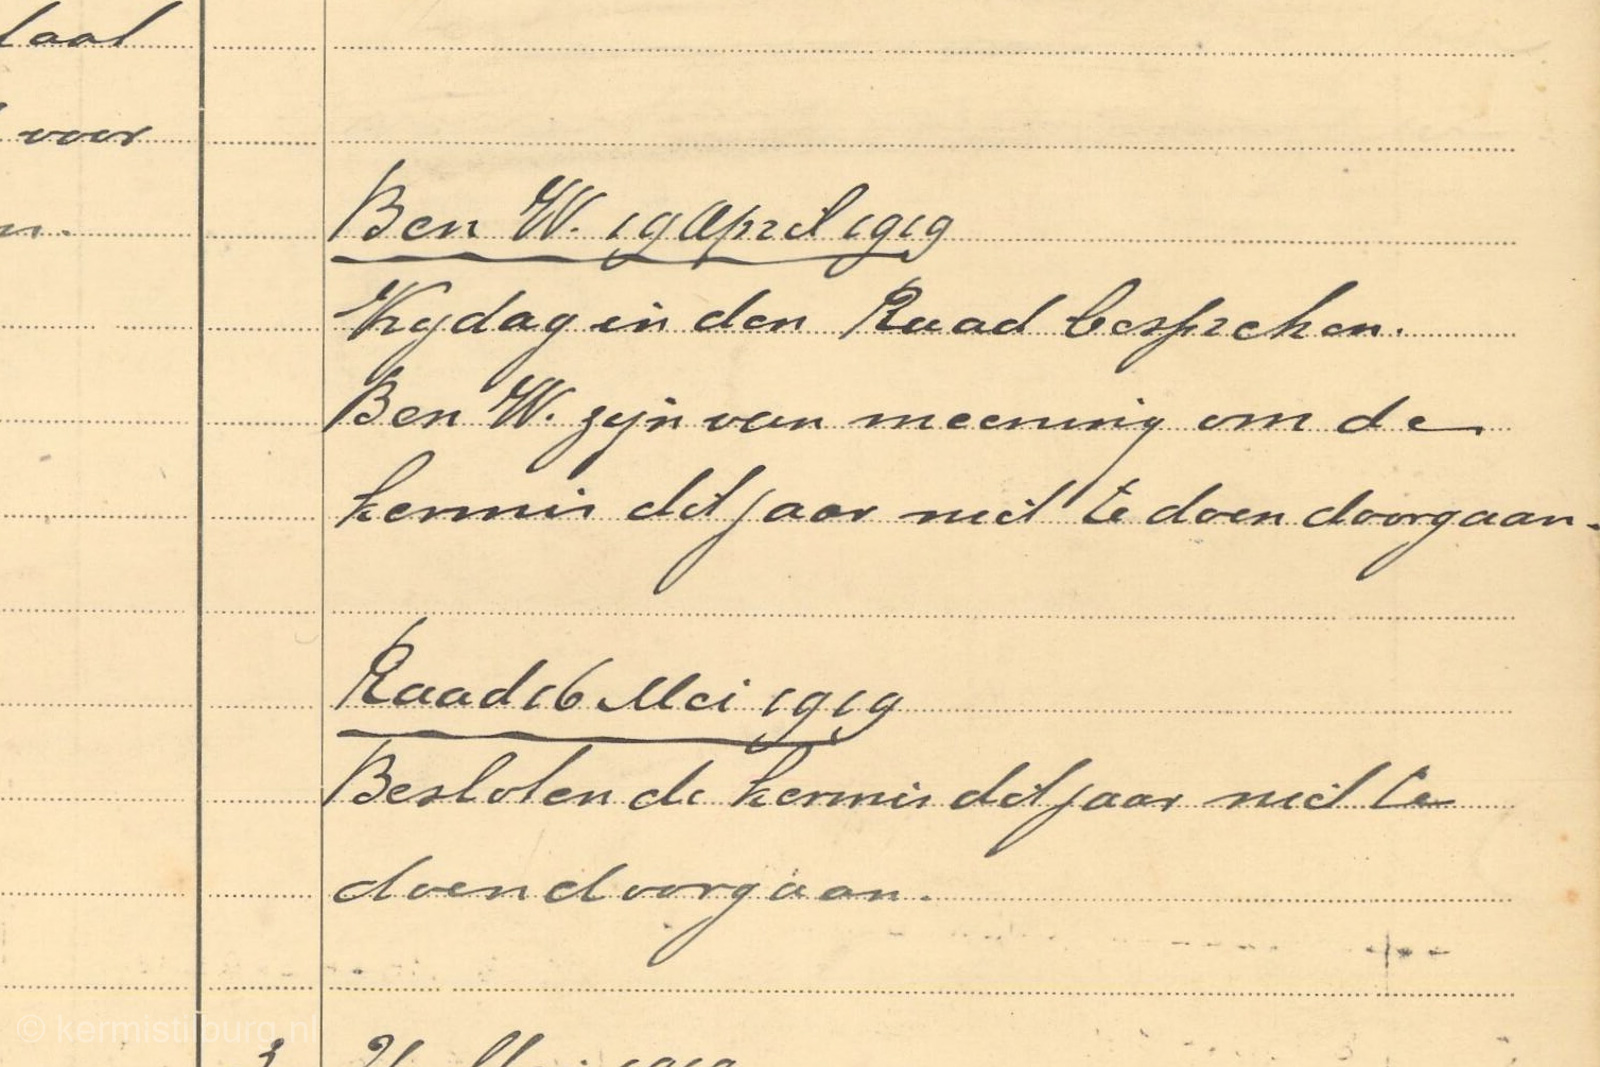 laat
voor
B en W. 19 April 1919
Vrydag in den Raad bespreken.
B en W. zyn van meening om de
kermis dit jaar niet te doen doorgaan.
Raad 16 Mei 1919
Besloten de kermis dit jaar niet te
doen doorgaan.
© kermistilburg.nl